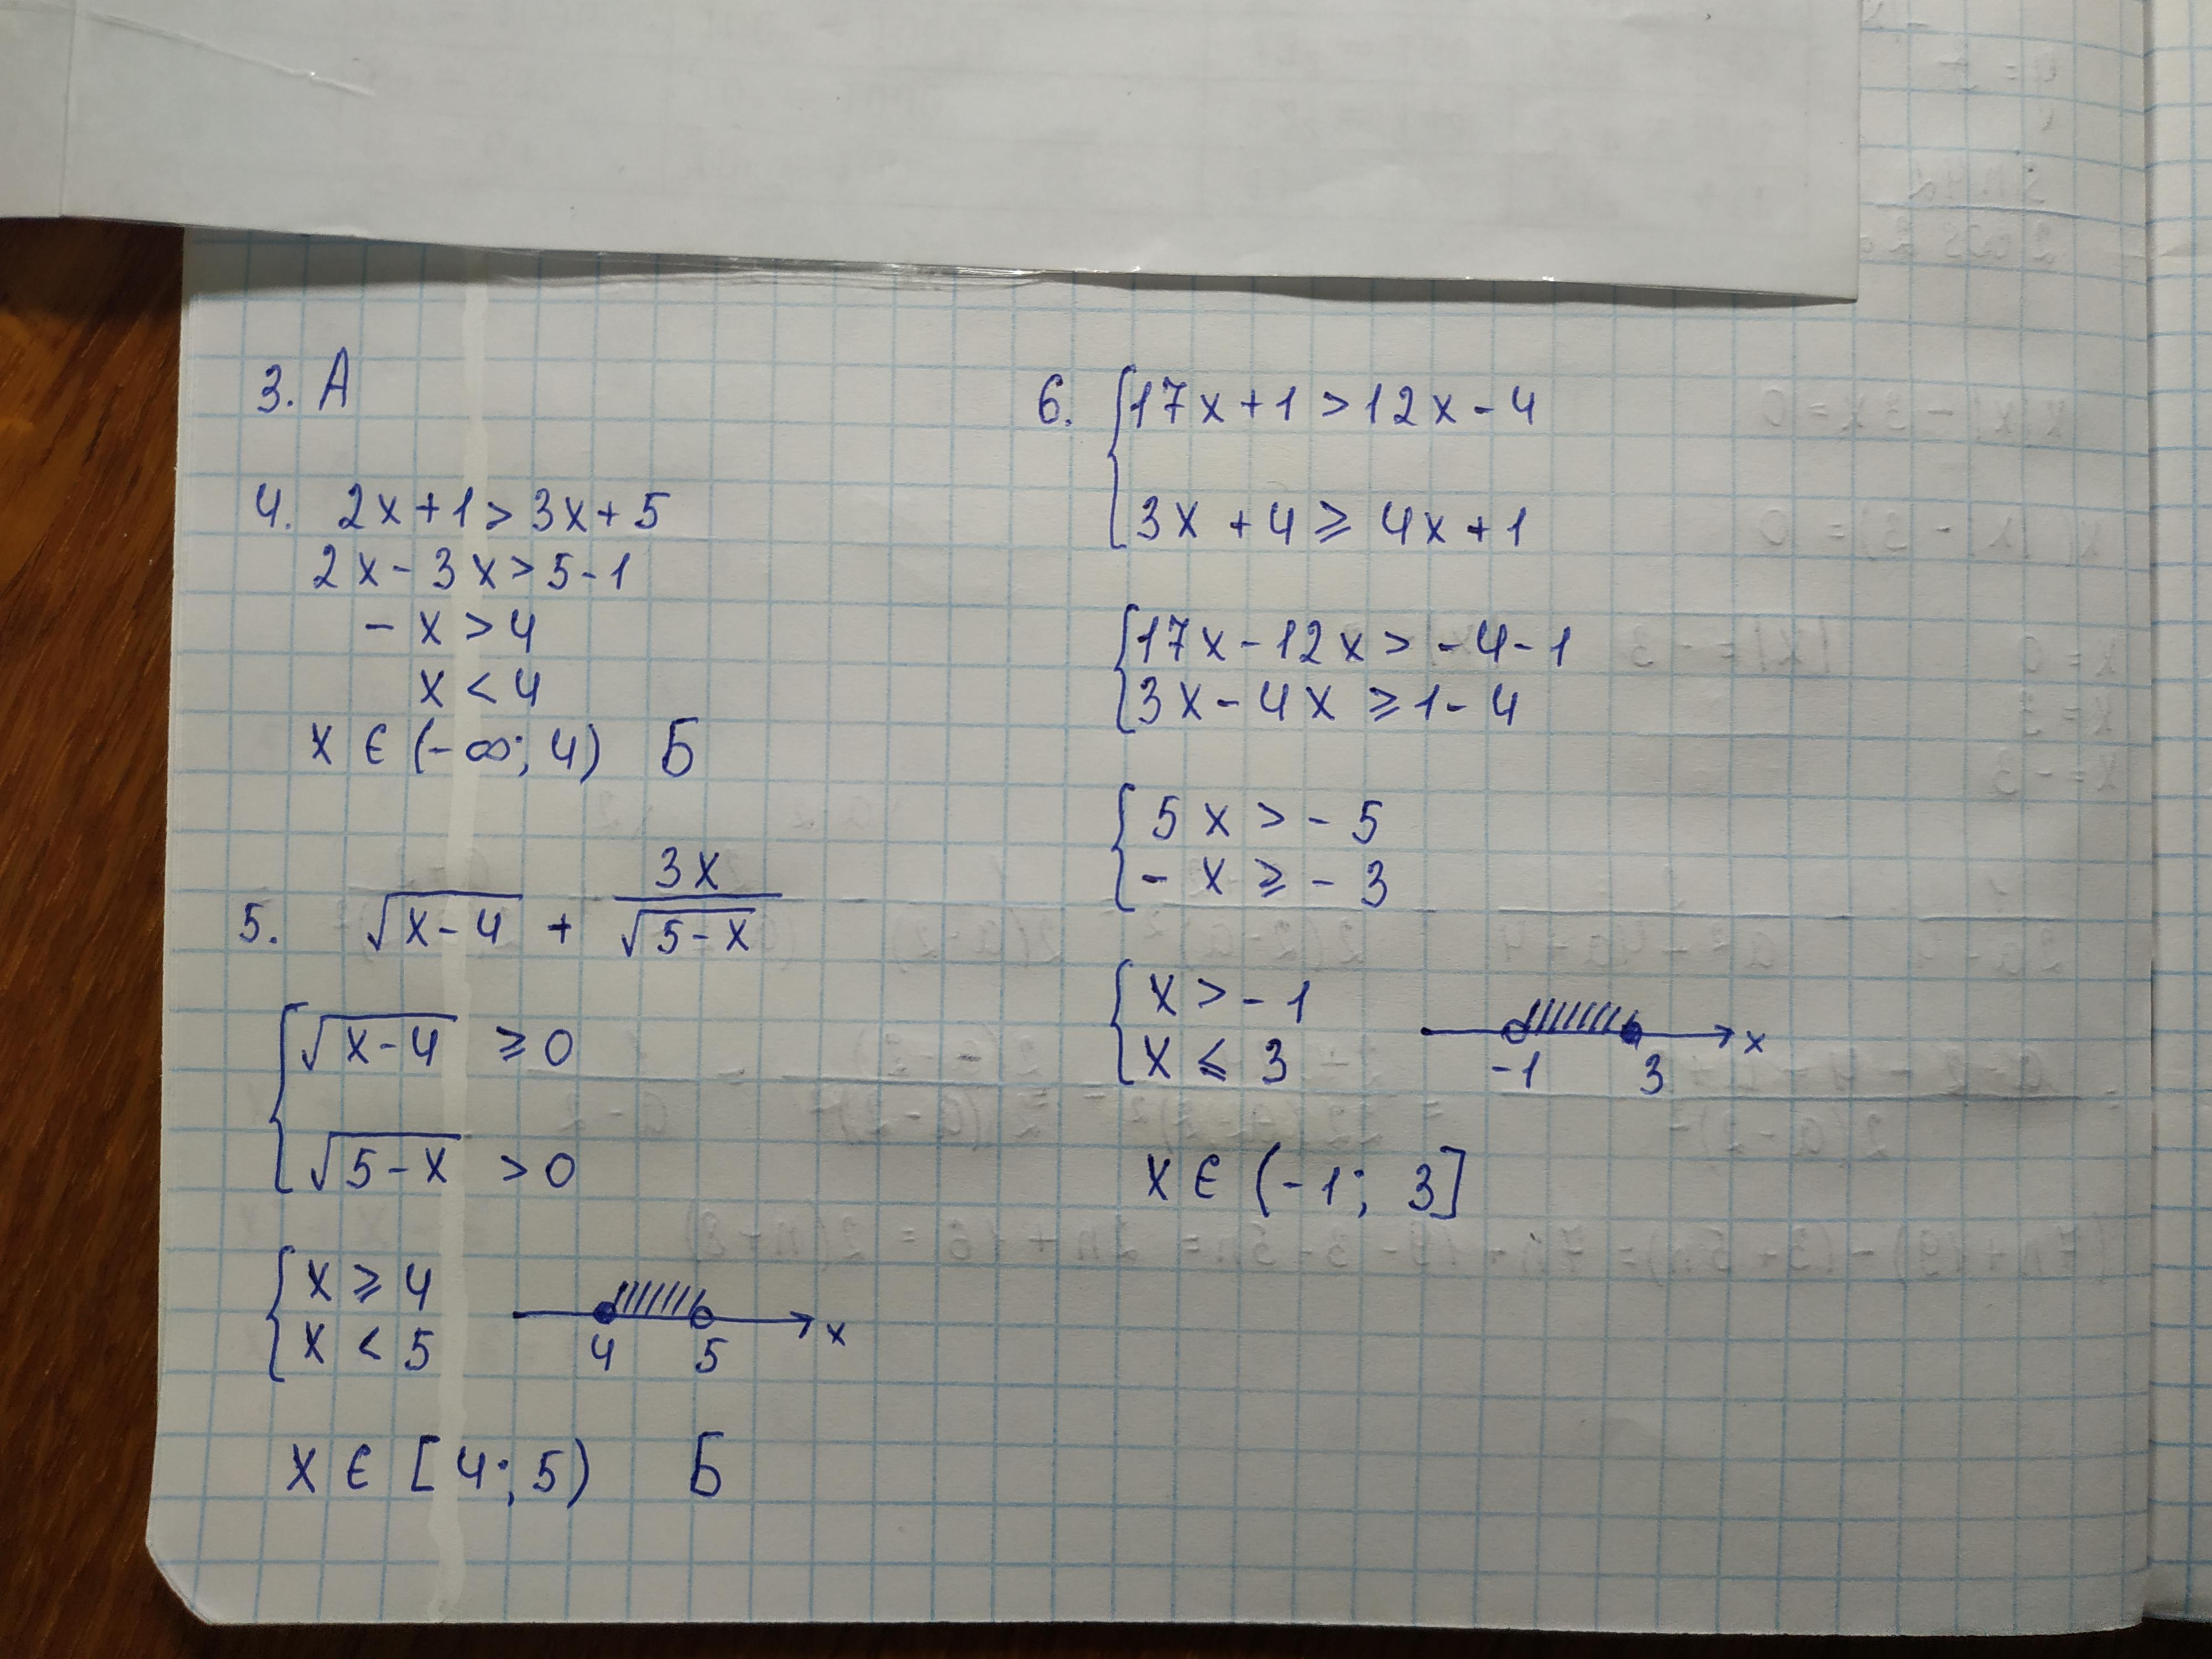 3. А
4. 2x+1>3x+5
2x-3x>5-1
-x>4
x<4
x ∈ (-∞; 4) Б
5. √(x-4) + 3x/√(5-x)
{ √(x-4) ≥ 0
√(5-x) > 0
{ x ≥ 4
x < 5
4 5 x
x ∈ [4; 5) Б
6. { 17x+1>12x-4
3x+4≥4x+1
{ 17x-12x>-4-1
3x-4x≥1-4
{ 5x>-5
-x≥-3
{ x>-1
x≤3
-1 3 x
x ∈ (-1; 3]